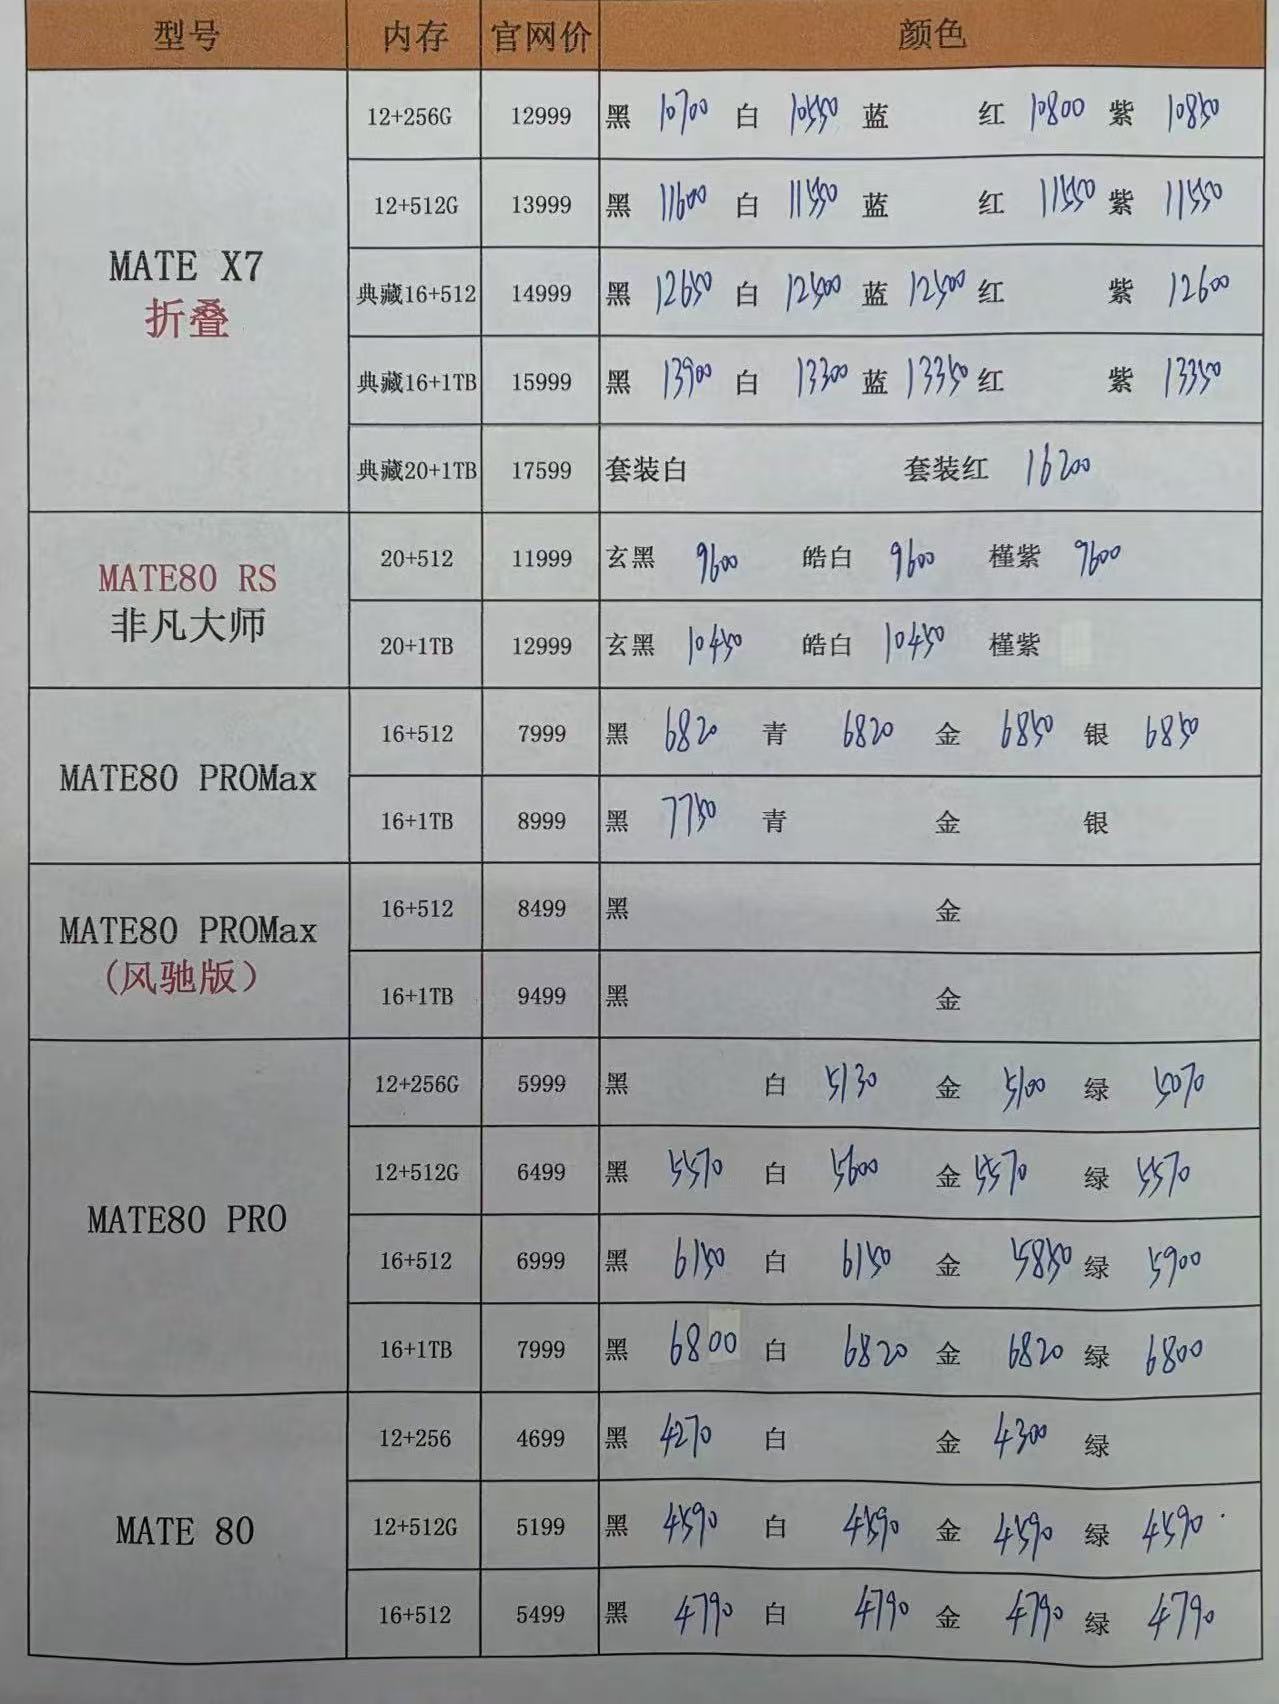 型号 内存 官网价 颜色
12+256G 12999 黑 10700 白 10550 蓝 红 10800 紫 10850
12+512G 13999 黑 11600 白 11550 蓝 红 11550 紫 11550
MATE X7
折叠
典藏16+512 14999 黑 12650 白 12500 蓝 12500 红 紫 12600
典藏16+1TB 15999 黑 13900 白 13300 蓝 13350 红 紫 13350
典藏20+1TB 17599 套装白 套装红 16200
MATE80 RS
非凡大师
20+512 11999 玄黑 9600 皓白 9600 槿紫 9600
20+1TB 12999 玄黑 10450 皓白 10450 槿紫
MATE80 PROMax
16+512 7999 黑 6820 青 6820 金 6850 银 6850
16+1TB 8999 黑 7750 青 金 银
MATE80 PROMax
(风驰版）
16+512 8499 黑 金
16+1TB 9499 黑 金
MATE80 PRO
12+256G 5999 黑 白 5130 金 5100 绿 5070
12+512G 6499 黑 5570 白 5600 金 5570 绿 5570
16+512 6999 黑 6150 白 6150 金 5850 绿 5900
16+1TB 7999 黑 6800 白 6820 金 6820 绿 6800
MATE 80
12+256 4699 黑 4270 白 金 4300 绿
12+512G 5199 黑 4590 白 4590 金 4590 绿 4590
16+512 5499 黑 4790 白 4790 金 4790 绿 4790